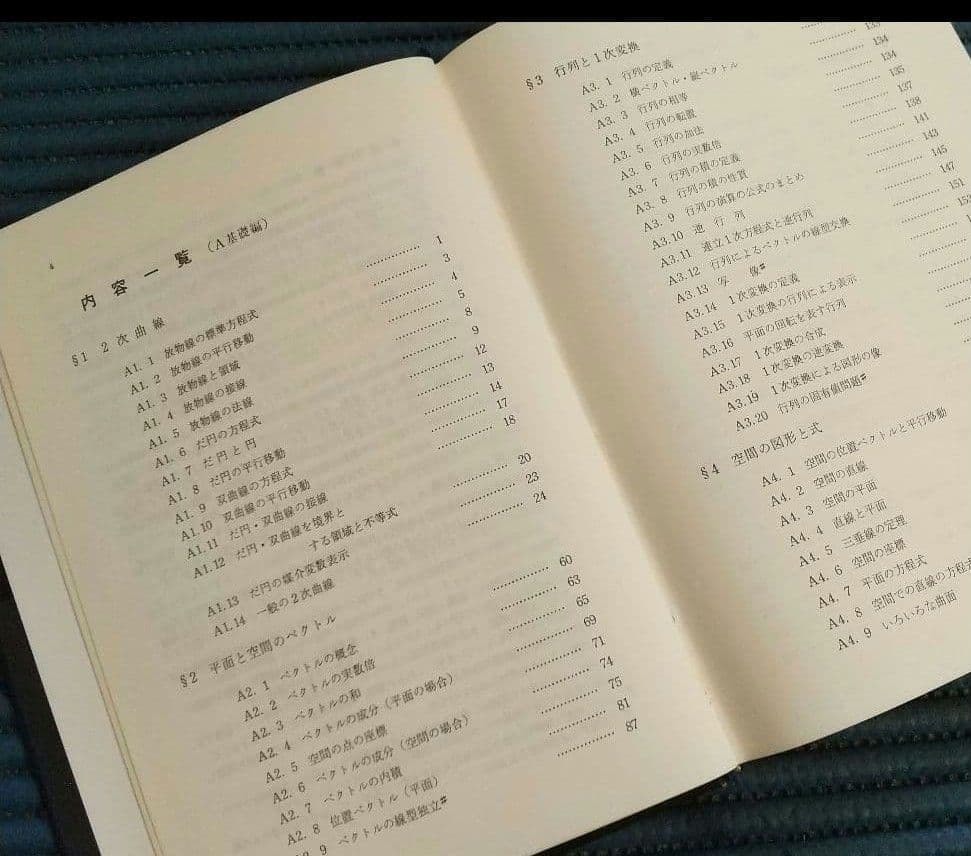 内 容 一 覧 （A 基礎編）
§1 2 次 曲 線
A1. 1 放物線の標準方程式 ………… 1
A1. 2 放物線の平行移動 ………… 3
A1. 3 放物線と領域 ………… 4
A1. 4 放物線の接線 ………… 5
A1. 5 放物線の法線 ………… 8
A1. 6 だ円の方程式 ………… 9
A1. 7 だ 円 と 円 ………… 12
A1. 8 だ円の平行移動 ………… 13
A1. 9 双曲線の方程式 ………… 14
A1.10 双曲線の平行移動 ………… 17
A1.11 だ円・双曲線の接線 ………… 18
A1.12 だ円・双曲線を境界と
する領域と不等式 ………… 20
A1.13 だ円の媒介変数表示 ………… 23
A1.14 一般の2次曲線 ………… 24
§2 平面と空間のベクトル
A2. 1 ベクトルの概念 ………… 60
A2. 2 ベクトルの実数倍 ………… 63
A2. 3 ベクトルの和 ………… 65
A2. 4 ベクトルの成分（平面の場合） ………… 69
A2. 5 空間の点の座標 ………… 71
A2. 6 ベクトルの成分（空間の場合） ………… 74
A2. 7 ベクトルの内積 ………… 75
A2. 8 位置ベクトル（平面） ………… 81
9 ベクトルの線型独立# ………… 87
§3 行列と1次変換
A3. 1 行列の定義
A3. 2 横ベクトル・縦ベクトル ………… 133
A3. 3 行列の相等 ………… 134
A3. 4 行列の転置 ………… 134
A3. 5 行列の加法 ………… 135
A3. 6 行列の実数倍 ………… 137
A3. 7 行列の積の定義 ………… 138
A3. 8 行列の積の性質 ………… 141
A3. 9 行列の演算の公式のまとめ ………… 143
A3.10 逆 行 列 ………… 145
A3.11 連立1次方程式と逆行列 ………… 147
A3.12 行列によるベクトルの線型変換 ………… 151
A3.13 写 像# ………… 153
A3.14 1次変換の定義
A3.15 1次変換の行列による表示
A3.16 平面の回転を表す行列
A3.17 1次変換の合成
A3.18 1次変換の逆変換
A3.19 1次変換による図形の像
A3.20 行列の固有値問題#
§4 空間の図形と式
A4. 1 空間の位置ベクトルと平行移動
A4. 2 空間の直線
A4. 3 空間の平面
A4. 4 直線と平面
A4. 5 三垂線の定理
A4. 6 空間の座標
A4. 7 平面の方程式
A4. 8 空間での直線の方程式
A4. 9 いろいろな曲面